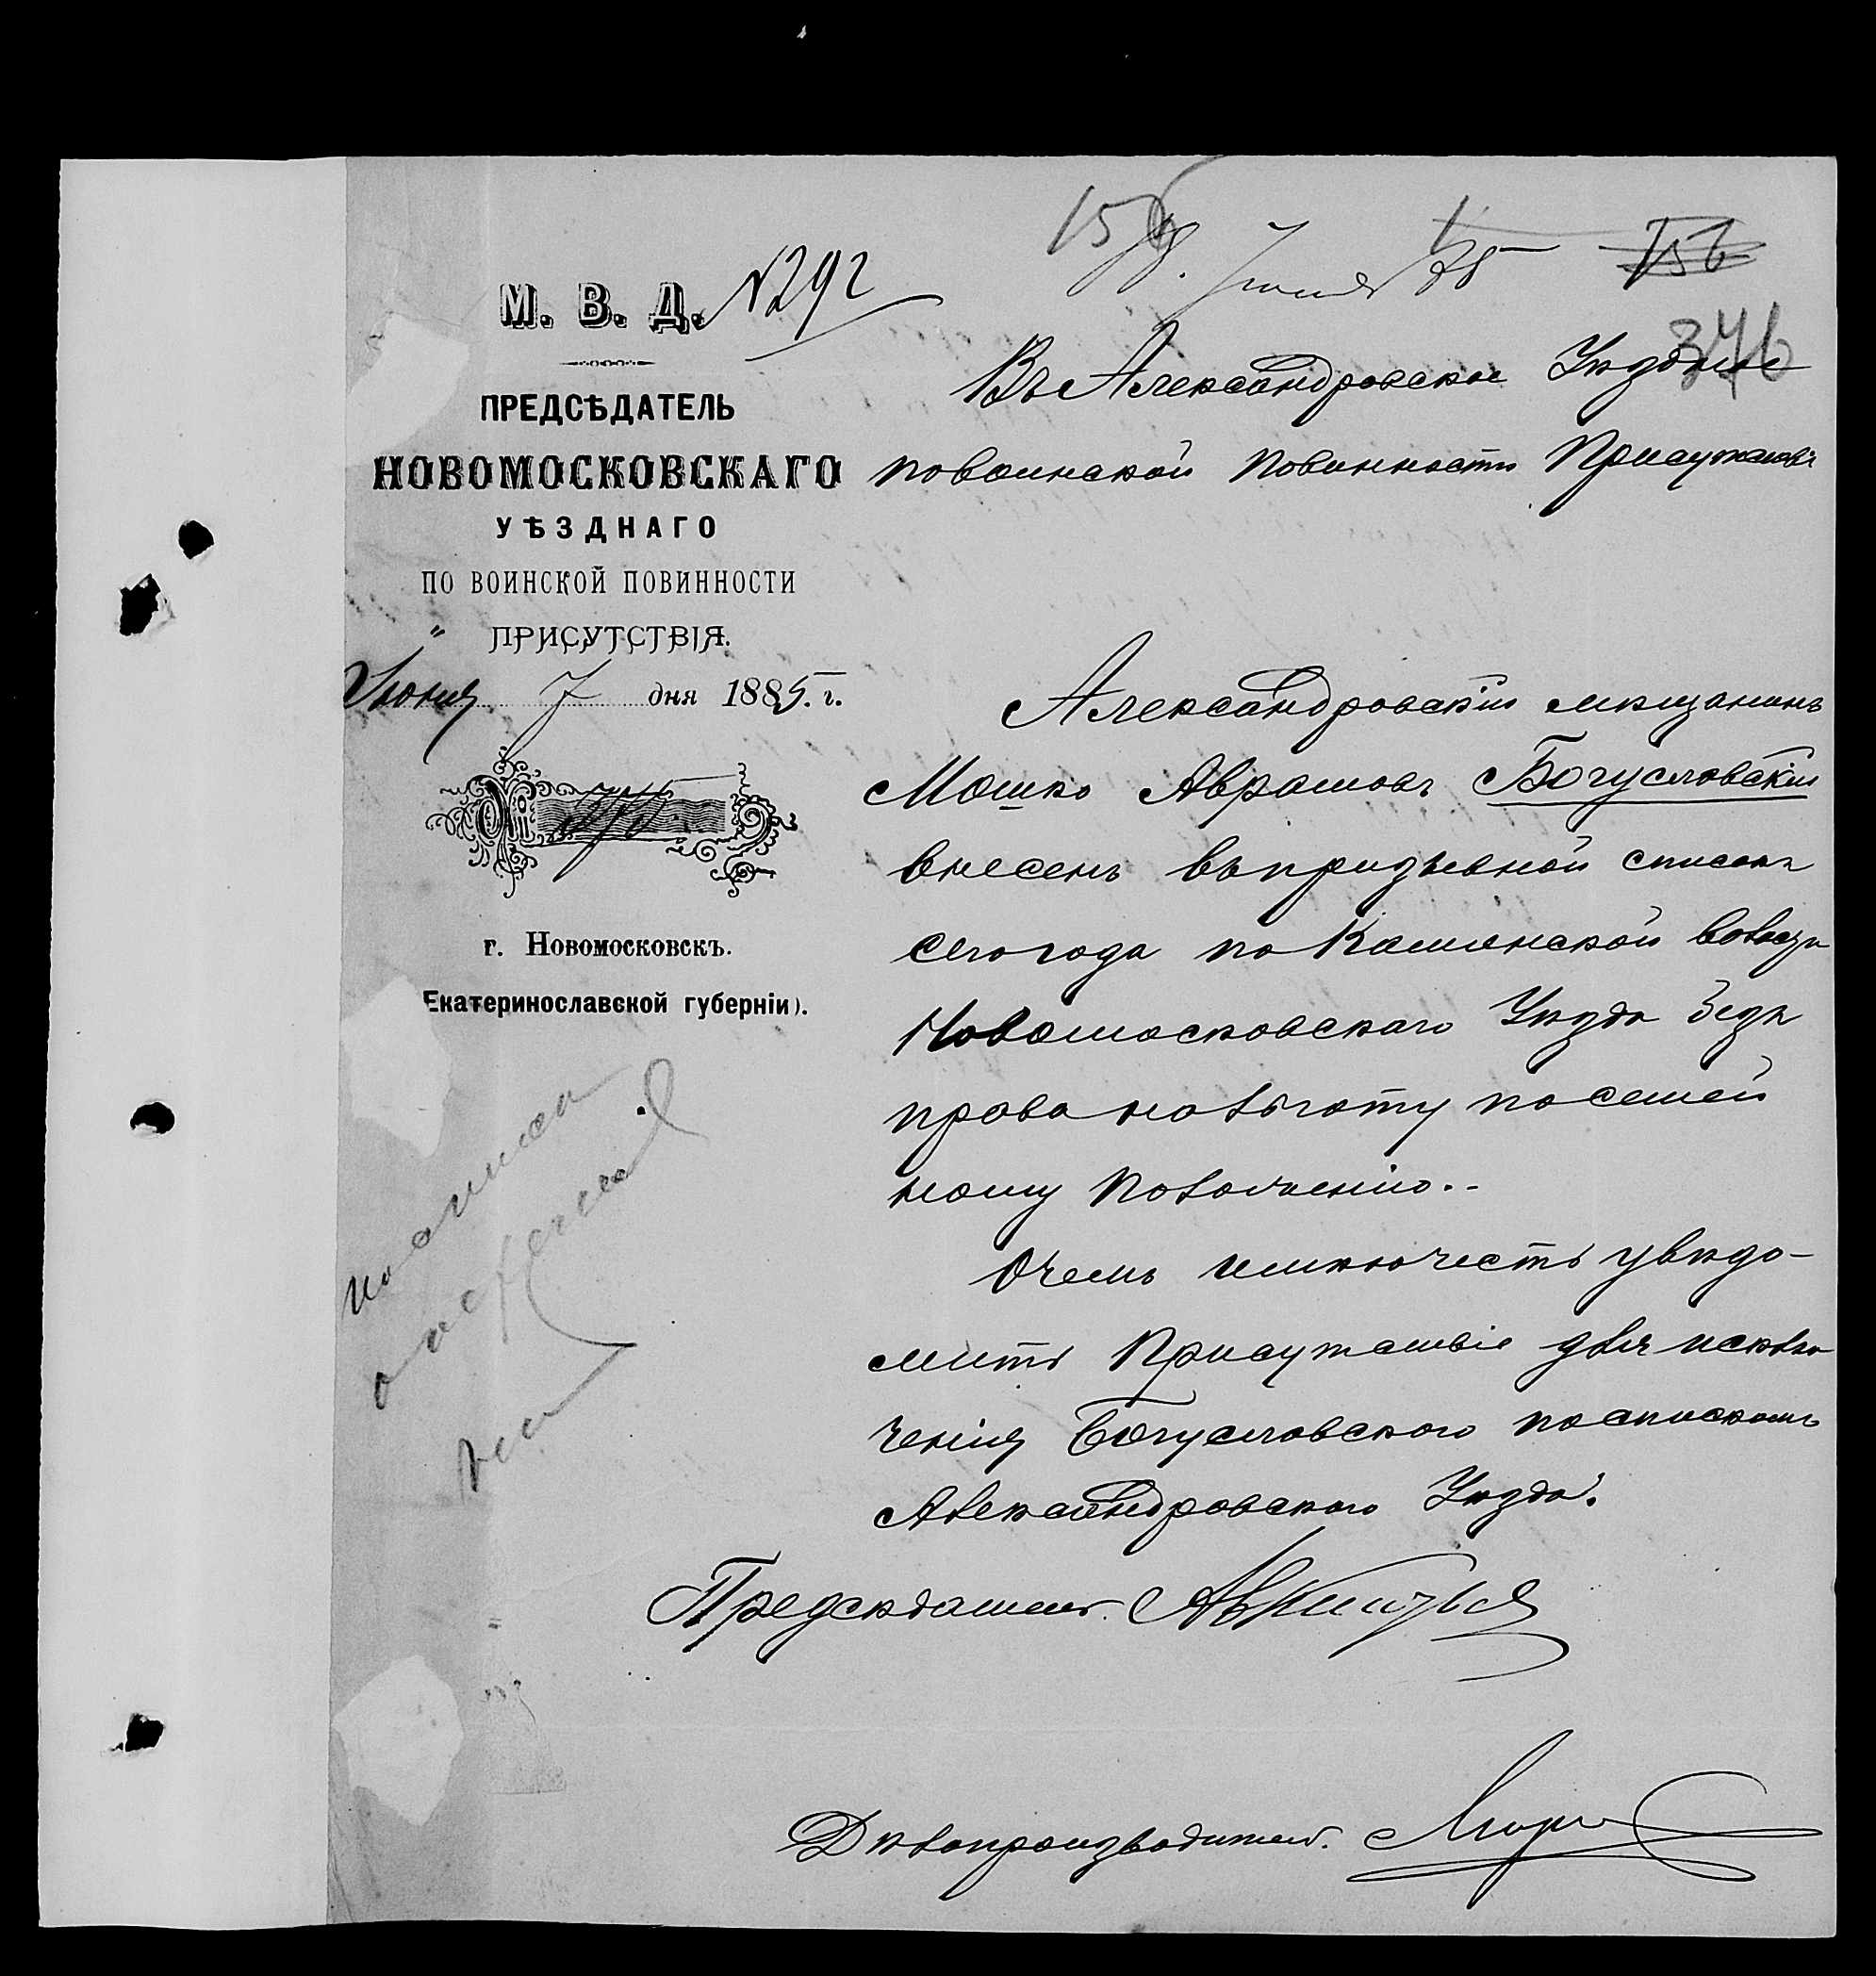 156
8. Июня 85
156
376
М. В. Д. №292
ПРЕДСѢДАТЕЛЬ
НОВОМОСКОВСКАГО
УѢЗДНАГО
ПО ВОИНСКОЙ ПОВИННОСТИ
ПРИСУТСТВІЯ.
Июня 7 дня 1885. г.
г. Новомосковскъ.
Екатеринославской губерніи).
Въ Александровское Уѣздное
по воинской повинности Присутствіе
Александровскій мѣщанинъ
Мошко Аврамовъ Богуславскій
внесенъ въ призывной списокъ
сего года по Каменской волости
Новомосковскаго Уѣзда безъ
права на льготу по семей
ному положенію.-
О чемъ имѣю честь увѣдо-
мить Присутствіе для исклю
ченія Богуславского по спискамъ
Александровского Уѣзда.
Предсѣдатель
Дѣлопроизводитель.